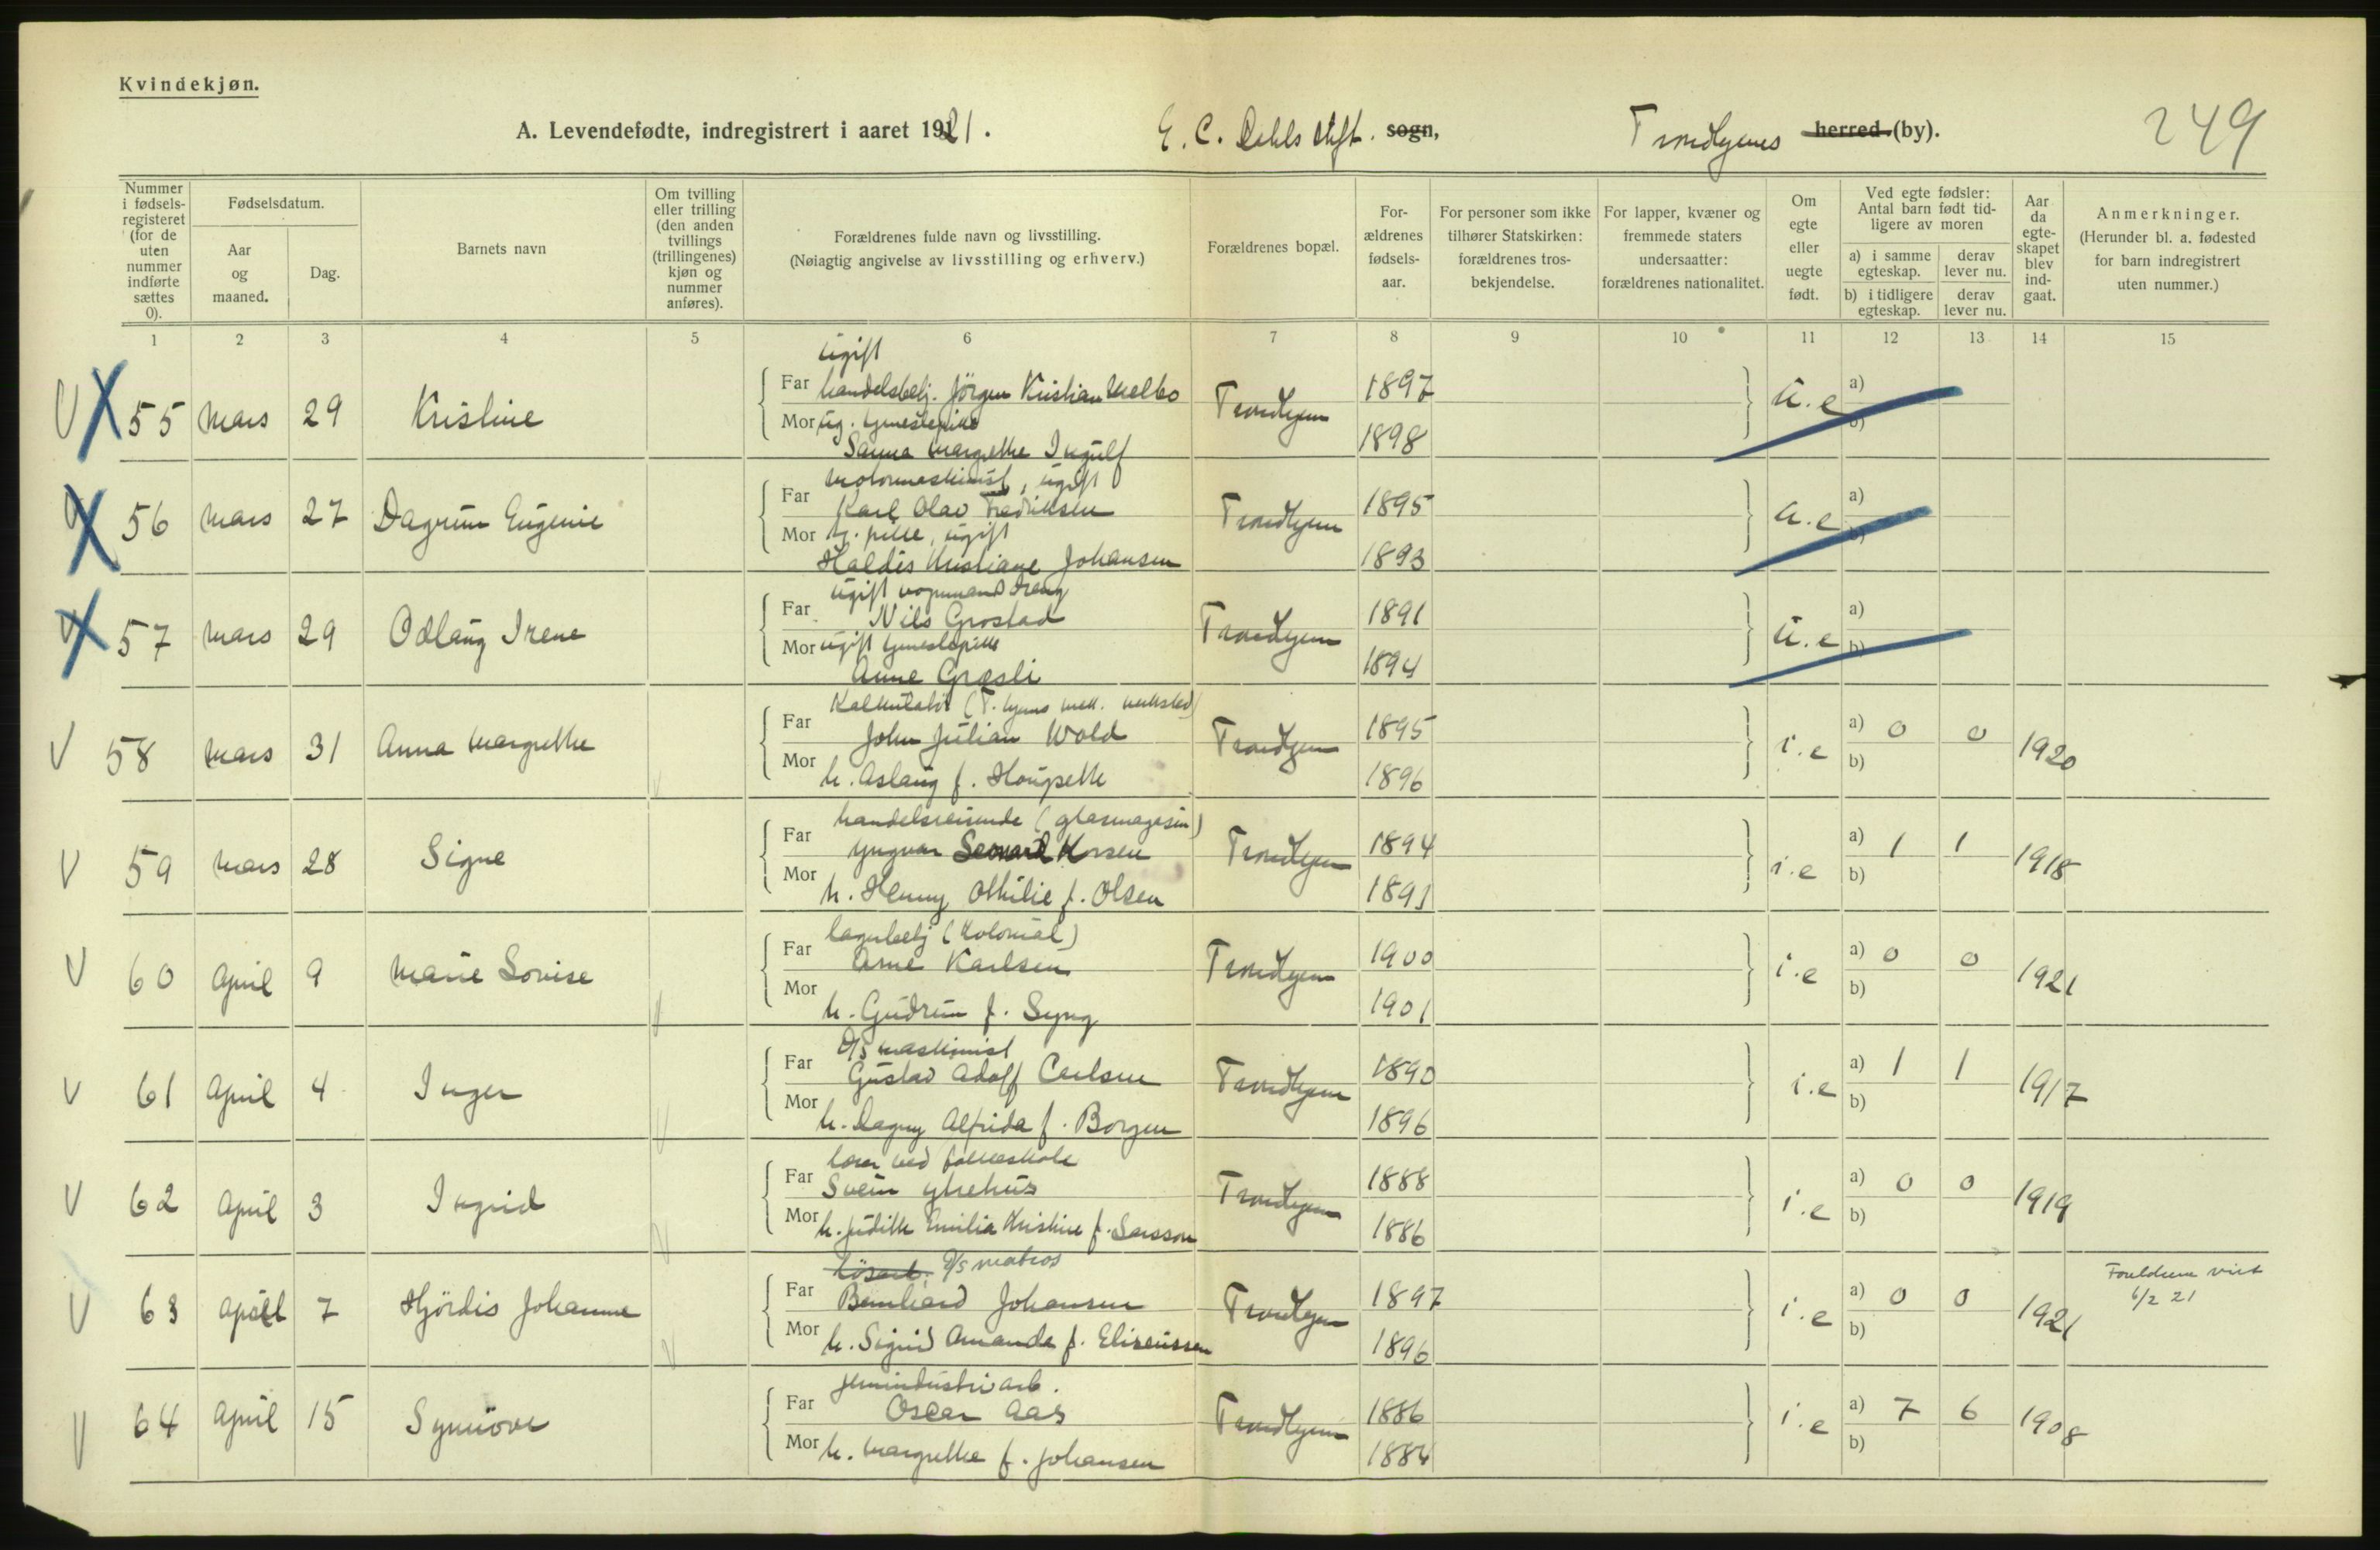 Kvindekjøn.
A. Levendefødte, indregistrert i aaret 1921. E. C. Dahls stift. sogn, Trondhjems herred (by). 249
Nummer i fødselsregisteret (for de uten nummer indførte sættes 0).
Fødselsdatum.
Aar og maaned.
Dag.
Barnets navn
Om tvilling eller trilling (den anden tvillings (trillingenes) kjøn og nummer anføres).
Forældrenes fulde navn og livsstilling.
(Nøiagtig angivelse av livsstilling og erhverv.)
Forældrenes bopæl.
Forældrenes fødselsaar.
For personer som ikke tilhører Statskirken: forældrenes trosbekjendelse.
For lapper, kvæner og fremmede staters undersaatter: forældrenes nationalitet.
Om egte eller uegte født.
Ved egte fødsler: Antal barn født tidligere av moren
a) i samme egteskap.
derav lever nu.
b) i tidligere egteskap.
derav lever nu.
Aar da egteskapet blev indgaat.
Anmerkninger.
(Herunder bl. a. fødested for barn indregistrert uten nummer.)
1 2 3 4 5 6 7 8 9 10 11 12 13 14 15
ugift
V 55 mars 29 Kristine Far handelsbetj. Jörgen Kristian Trondhjem 1897 u.e a)
Mor ug. tjenestepike 1898 b)
Sanna Margrethe Ingulf
motormaskinist, ugift
V 56 mars 27 Dagrun Eugenie Far Karl Olav Fredriksen Trondhjem 1895 u.e a)
Mor tj. pike, ugift 1893 b)
Haldis Kristiane Johansen
ugift vognmand dreng
V 57 mars 29 Odlaug Irene Far Nils Grostad Trondhjem 1891 u.e a)
Mor ugift tjenestepike 1894 b)
Anne Græsli
Kalkulatör (T. hjems mek. verksted)
V 58 mars 31 Anna Margrethe Far John Julian Wold Trondhjem 1895 i.e a) 0 0 1920
Mor h. Aslaug f. 1896 b)
handelsreisende (glasmagasin)
V 59 mars 28 Signe Far Yngvar Leonard Trondhjem 1894 i.e a) 1 1 1918
Mor h. Henny Othilie f. Olsen 1891 b)
lagerbetj (Kolonial)
V 60 April 9 Marie Lovise Far Arne Karlsen Trondhjem 1900 i.e a) 0 0 1921
Mor h. Gudrun f. Syng 1901 b)
D/S maskinist
V 61 April 4 Inger Far Gustav Adolf Carlsen Trondhjem 1890 i.e a) 1 1 1917
Mor h. Dagny Alfrida f. Borgen 1896 b)
lærer ved folkeskole
V 62 April 3 Ingrid Far Svein Ytrehus Trondhjem 1888 i.e a) 0 0 1919
Mor h. Judith Emilia Kristine f. Larsson 1886 b)
lösarb. D/S matros
V 63 April 7 Hjördis Johanne Far Bernhard Johansen Trondhjem 1897 i.e a) 0 0 1921 Foreldrene viet 6/2 21
Mor h. Sigrid Amanda f. Eliseussen 1896 b)
jernindustriarb.
V 64 April 15 Synnöve Far Oscar Aas Trondhjem 1886 i.e a) 7 6 1908
Mor h. Margrethe f. Johansen 1884 b)